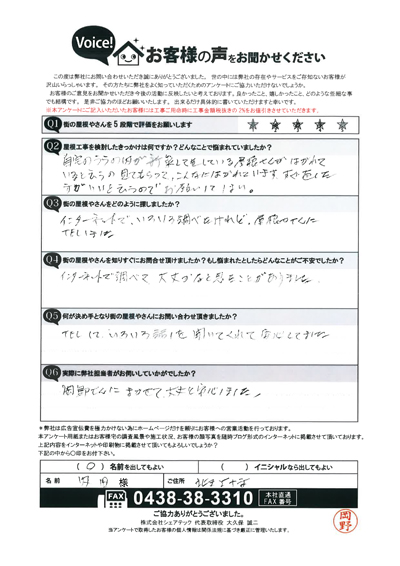 Voice!
お客様の声をお聞かせください
この度は弊社にお問い合わせいただき誠にありがとうございました。世の中には弊社の存在やサービスをご存知ないお客様が
沢山いらっしゃいます。その方たちに弊社をよく知っていただくためのアンケートにご協力いただけないでしょうか。
お客様のご意見をお聞かせいただき今後の活動に反映したいと考えております。良かったこと、嬉しかったこと、どのような些細な事
でも結構です。是非ご協力のほどお願いいたします。出来るだけ具体的に書いていただけますと幸いです。
※本アンケートにご記入いただいたお客様には工事ご用命時に工事金額税抜きの2%をお値引きさせていただきます。
Q1 街の屋根やさんを5段階で評価をお願いします ★ ★ ★ ★ ★
Q2 屋根工事を検討したきっかけは何ですか?どんなことで悩まれていましたか?
Q3 街の屋根やさんをどのように探しましたか?
インターネットで、いろいろ調べたけれど、屋根やさんに
TELしました
Q4 街の屋根やさんを知りすぐにお問合せ頂けましたか?もし悩まれたとしたらどんなことがご不安でしたか?
インターネットで調べて 大丈夫かなと思うことがありました。
Q5 何が決め手となり街の屋根やさんにお問い合わせ頂きましたか?
TELして、いろいろ話を聞いてくれて安心してました
Q6 実際に弊社担当者がお伺いしていかがでしたか?
*弊社は広告宣伝費を極力かけない為にホームページだけを頼りにお客様への営業活動を行っております。
本アンケート用紙またはお客様宅の調査風景や施工状況、お客様の顔写真を随時ブログ形式のインターネットに掲載させて頂いております。
上記内容をインターネットや印刷物に掲載させて頂いてもよろしいでしょうか?
下記の中から〇印をお付下さい。
( ○ ) 名前を出してもよい ( ) イニシャルなら出してもよい
名前 様 ご住所
FAX 0438-38-3310 本社直通 FAX番号
ご協力ありがとうございました。
株式会社シェアテック 代表取締役 大久保 誠二
当アンケートで取得したお客様の個人情報は関係法規に基づき厳正に管理いたします。
岡野